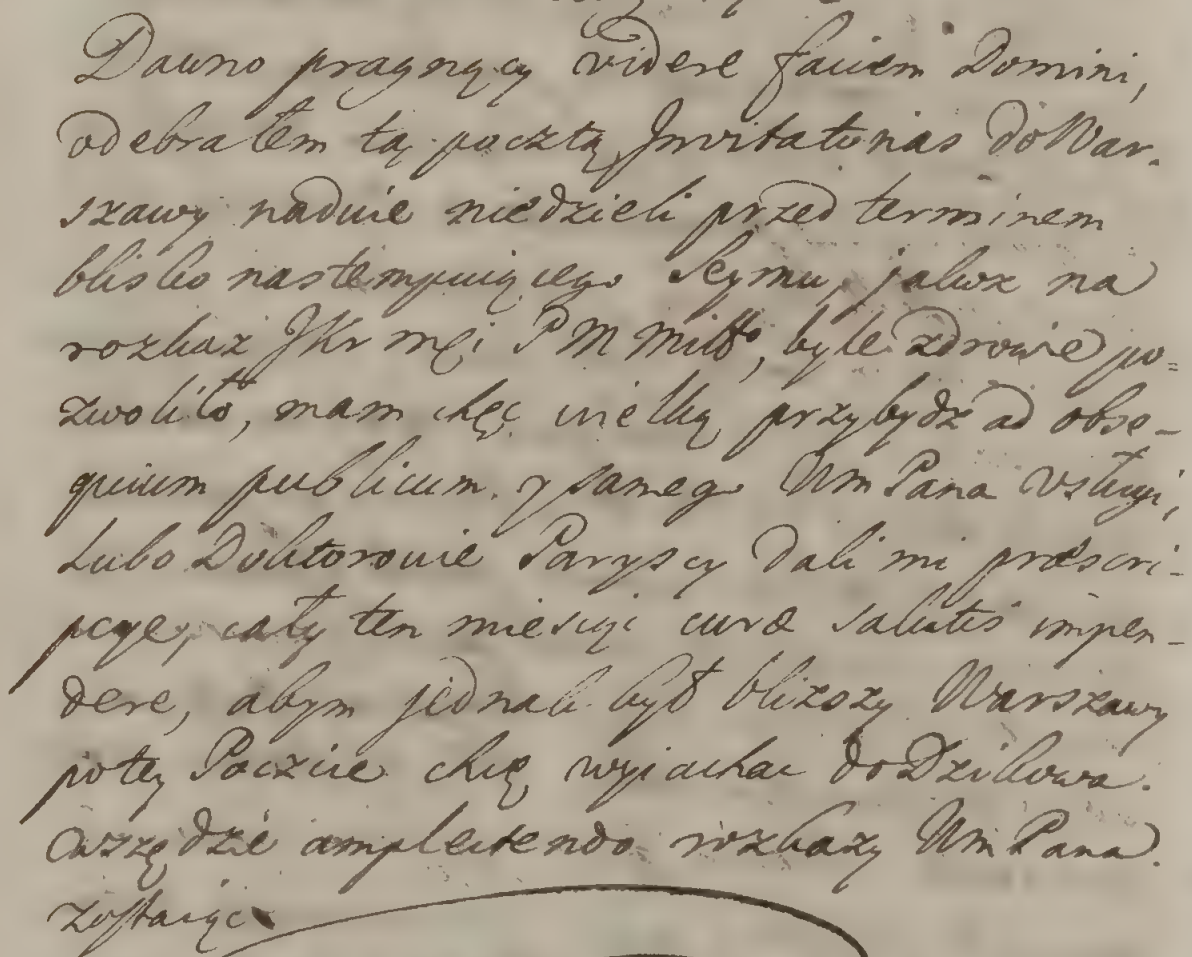 Dawno pragnący videre faciem Domini,
odebrałem tą pocztą Invitatorias do War-
szawy nadwie niedzieli przed terminem
blisko nastempuiącego Seymu, jakoż na
rozkaz JKr mći P M Miłłº, byle zdrowie po=
zwoliło, mam chęć wielką przybydź ad obse-
quium publicum. y samego Wm Pana Vsługi,
Lubo Doktorowie Paryscy dali mi præscri-
pcye, cały ten miesiąc curæ salutis impen-
dere, abym jednak był bliższy Warszawy
potey Poczcie chcę wyiachac do Dzikowa.
wszędzie amplectendo rozkazy Wm Pana.
zostaiąc